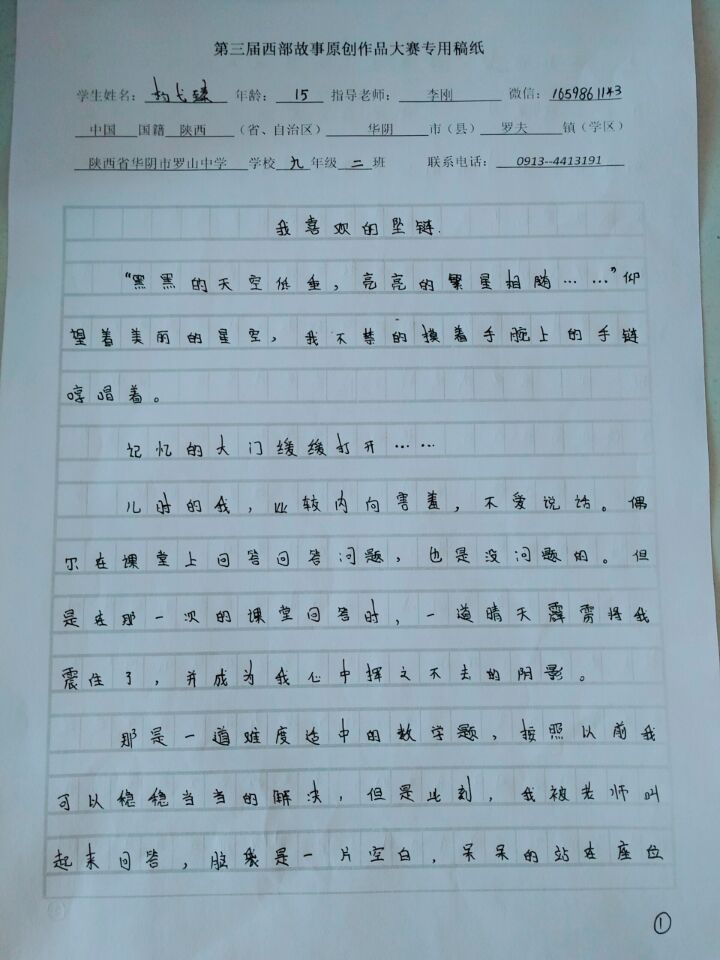 第三届西部故事原创作品大赛专用稿纸
学生姓名： 年龄：15 指导老师：李刚 微信：1659861143
中国 国籍 陕西（省、自治区）华阴市（县）罗夫镇（学区）
陕西省华阴市罗山中学 学校九年级二班 联系电话：0913--4413191
我喜欢的坠链.
“黑黑的天空低垂，亮亮的繁星相随……”仰
望着美丽的星空，我不禁的摸着手腕上的手链
哼唱着。
记忆的大门缓缓打开……
儿时的我，比较内向害羞，不爱说话。偶
尔在课堂上回答回答问题，也是没问题的。但
是在那一次的课堂回答时，一道晴天霹雳将我
震住了，并成为我心中挥之不去的阴影。
那是一道难度适中的数学题，按照以前我
可以稳稳当当的解决，但是此刻，我被老师叫
起来回答，脑袋是一片空白，呆呆的站在座位
①